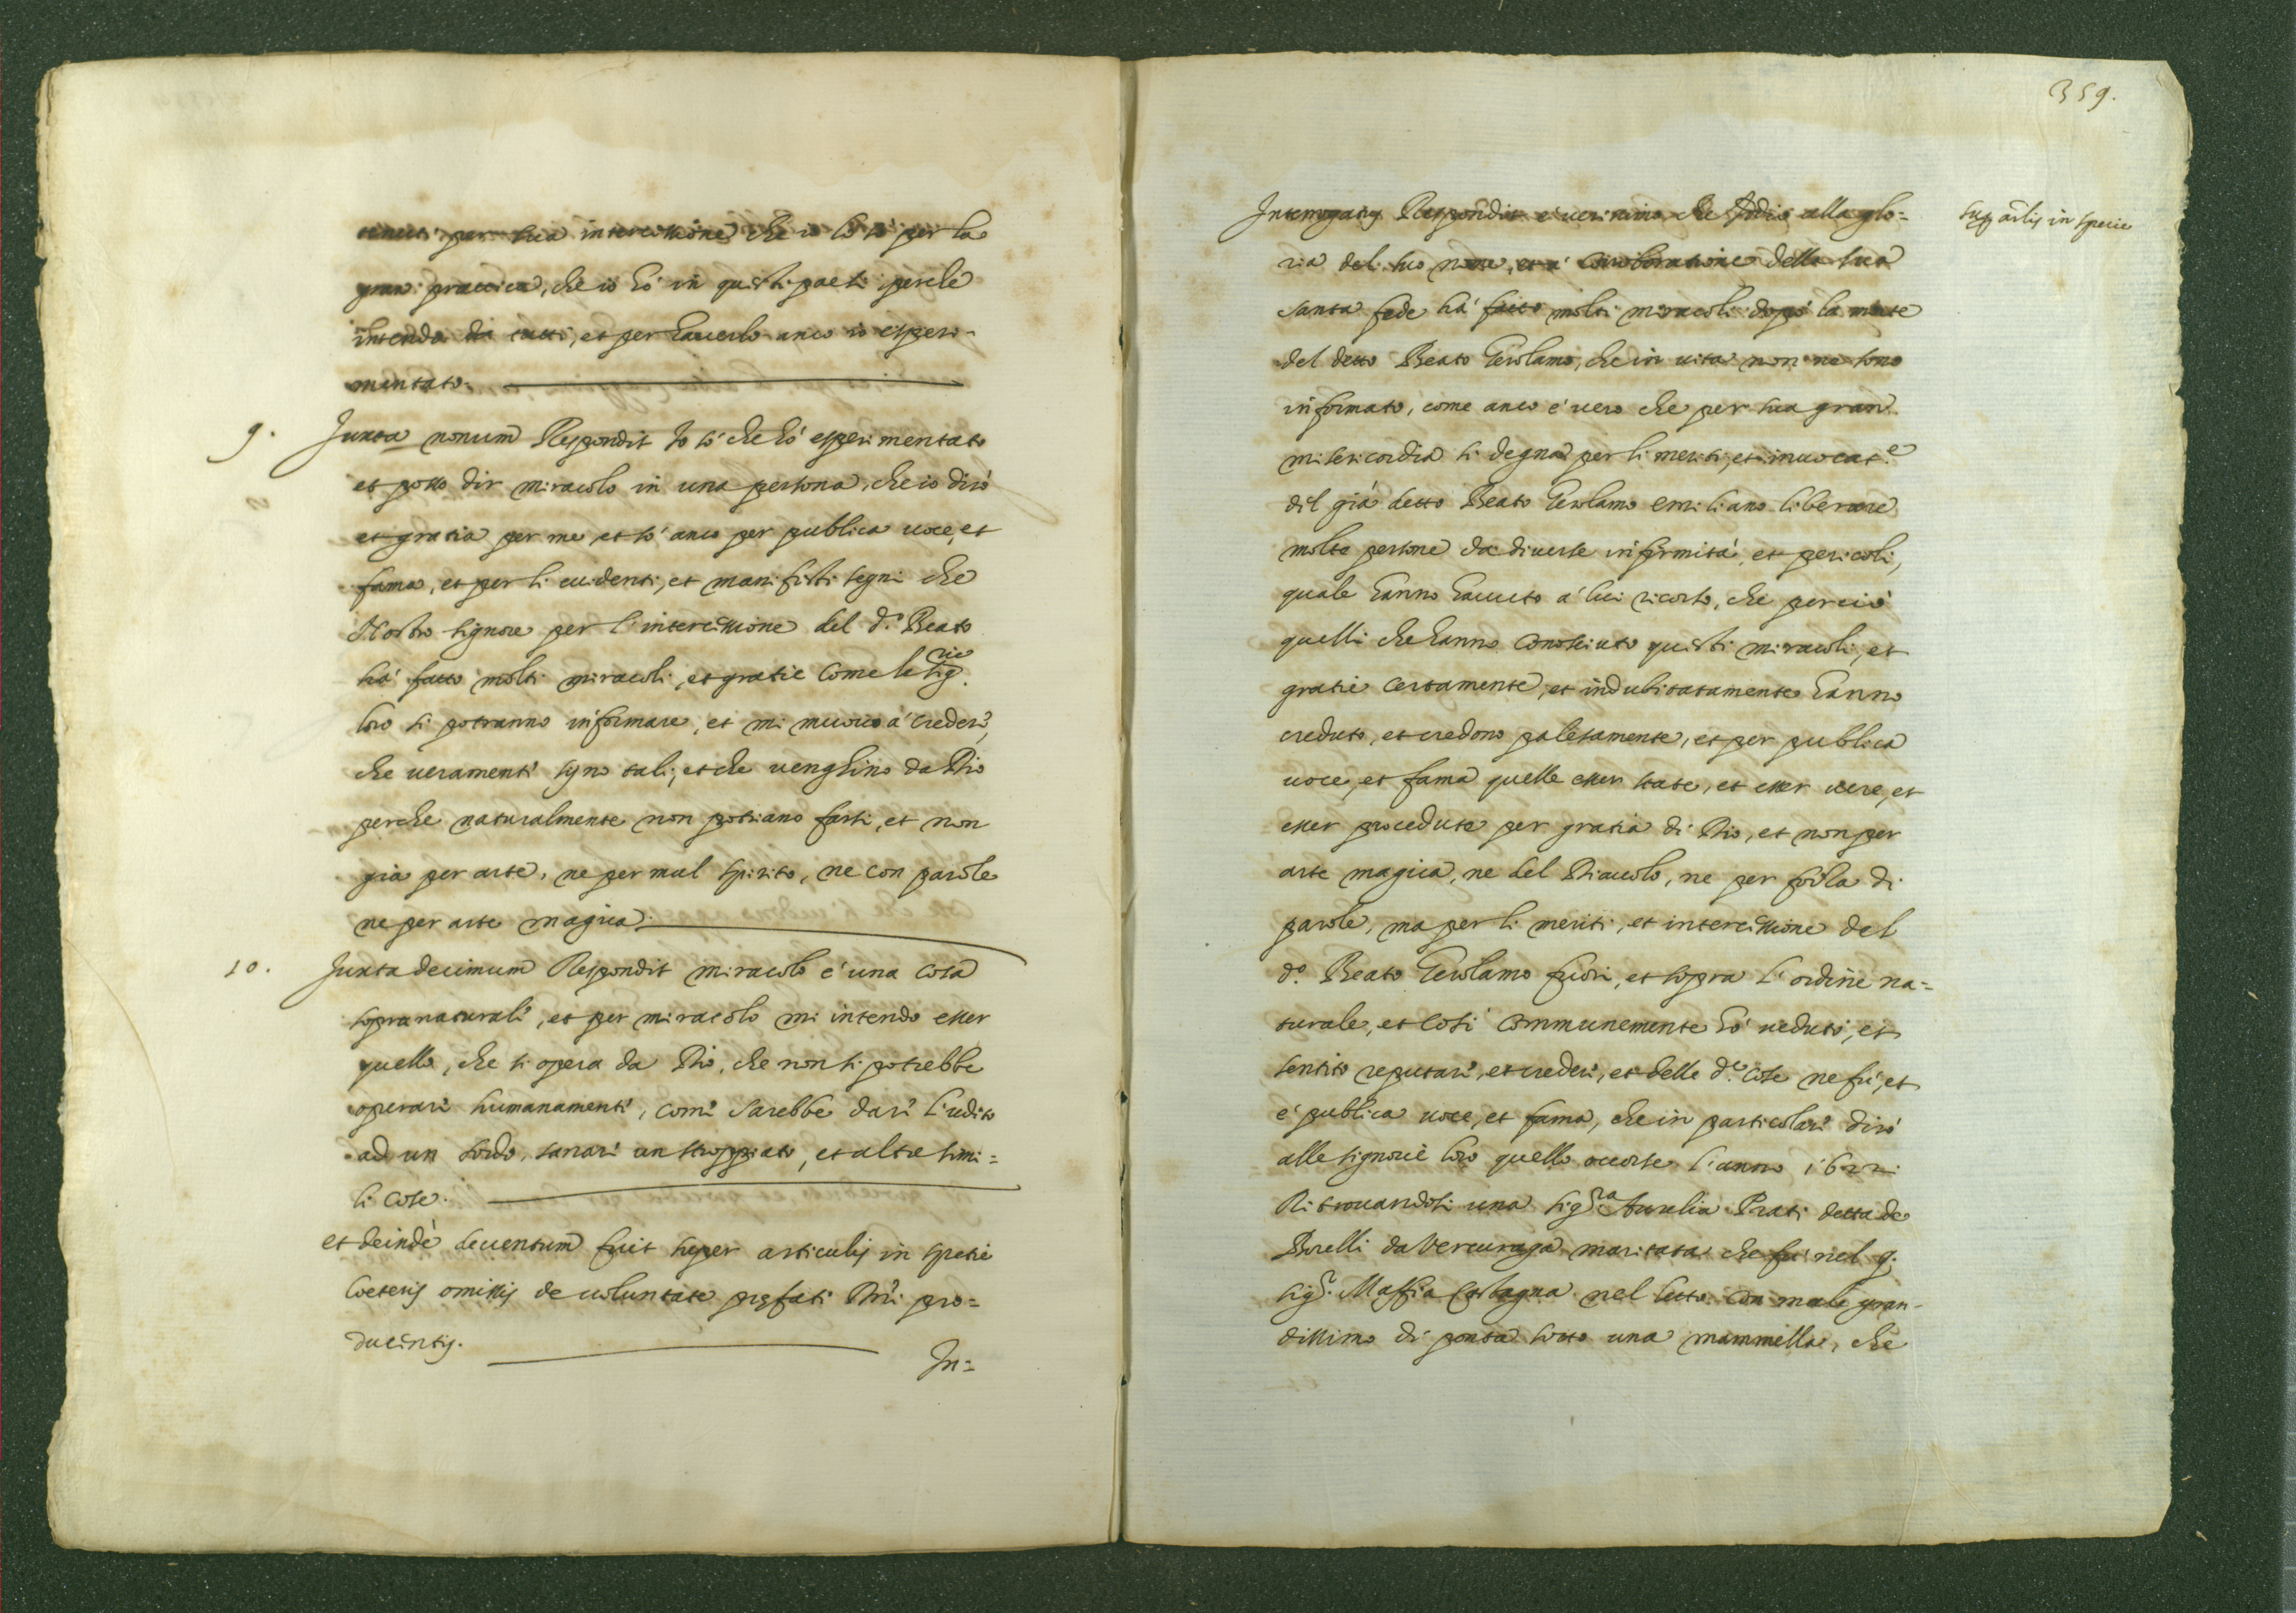 per sua intercessione che io lo so per la
gran prattica, che io hó in questi paesi perche
intendo da tutti, et per hauerlo anco io esperi-
mentato.
9. Juxta nonum Respondit Io só che hó esperimentato
et posso dir miracolo in una persona, che io diró
et gratia per me et só anco per publica uoce, et
fama, et per li euidenti, et manifesti segni che
Nostro signore per l'intercessione del d.o Beato
há fatto molti miracoli, et gratie come le sig.rie
loro si potranno informare, et mi muouo á creder,
che ueramente syno tali, et che venghino da Dio
perche naturalmente non potriano farsi, et non
gia per arte, ne per mal spirito, ne con parole
ne per arte magica.
10. Juxta decimum Respondit miracolo é una cosa
sopranaturale, et per miracolo mi intendo esser
quello, che si opera da Dio, che non si potrebbe
operare humanamente, come sarebbe dare l'udito
ad un sordo, sanare un stroppiato, et altre simi=
li cose.
et deindè deuentum fuit super articulis in spetie
Coeteris omissis de uoluntate prefati Dni pro=
ducentis.
In=
359.
sup artlis in specie
Interrogatus Respondit é uerissimo che Iddio alla glo=
ria del suo nome, et á corroboratione della sua
santa fede há fatto molti miracoli dopó la morte
del detto Beato Gerolamo, che in uita non ne sono
informato, come anco é uero che per sua gran
misericordia si degna per li meriti, et inuocat.e
del giá detto Beato Gerolamo emiliano liberare
molte persone da diuerse infirmitá, et pericoli,
quale hanno hauuto á lui ricorso, che perció
quelli che hanno conosciuto questi miracoli, et
gratie certamente, et indubitatamente hanno
creduto, et credono palesamente, et per publica
uoce, et fama quelle esser state, et esser uere, et
esser procedute per gratia di Dio, et non per
arte magica, ne del Diauolo, ne per forza di
parole, ma per li meriti, et intercessione del
d.o Beato Gerolamo fuori, et sopra l'ordine na=
turale, et cosi communemente hó ueduto, et
sentito reputare, et credere, et delle d.e cose ne fú, et
é publica uoce, et fama, che in particolare diró
alle signorie loro quello occorse l'anno 1622
Ritrouandosi una sig.ra Aurelia Prati detta de
Borelli da Vercuraga maritata che fu nel q.
sig.r Maffia Castagna nel letto con male gran-
dissimo di ponta sotto una mammella, che